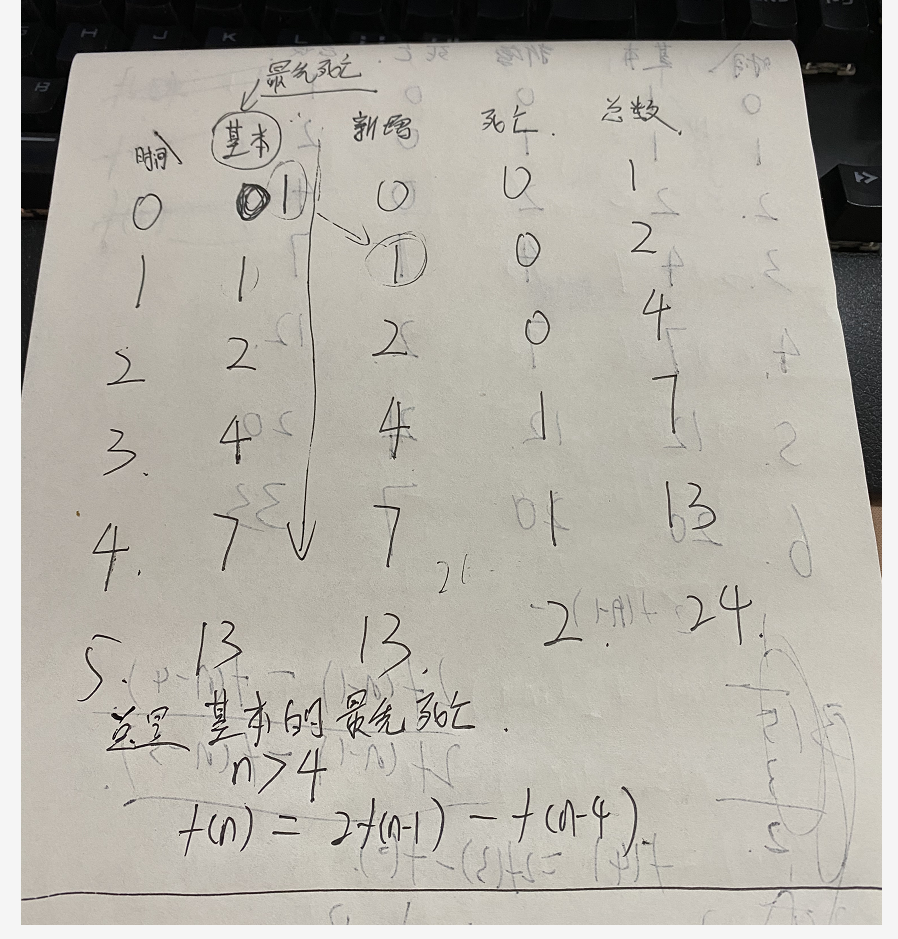 最先死亡
时间 基本 新增 死亡. 总数.
0 1 0 0 1
1 1 1 0 2
2 2 2 0 4
3. 4 4 1 7
4. 7 7 1 13
5. 13 13. 2. 24.
总是 基本的 最先死亡.
n>4
f(n) = 2f(n-1) - f(n-4)